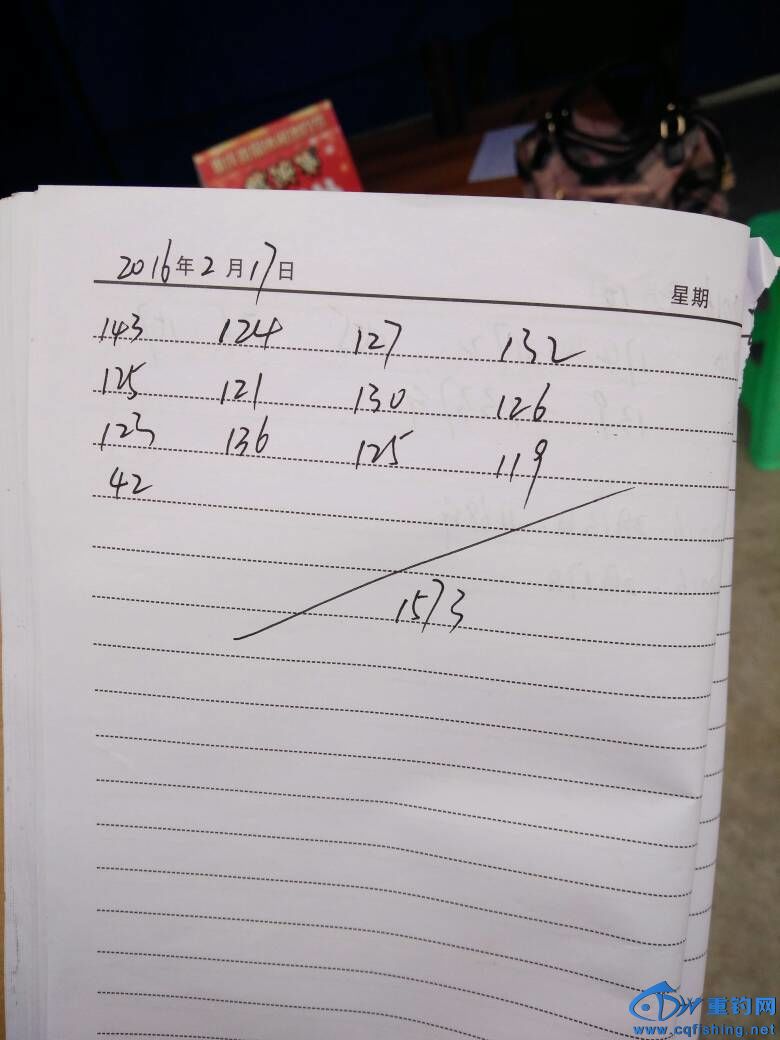 2016年2月17日
星期
143 124 127 132
125 121 130 126
123 136 125 119
42
1573
重钓网
www.cqfishing.net